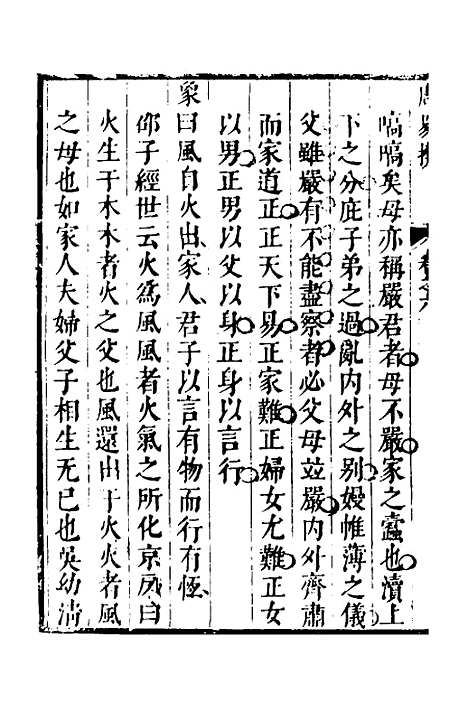 嗃嗃矣母亦稱嚴君者母不嚴家之蠹也瀆上
下之分庇子弟之過亂内外之别嫚帷薄之儀
父雖嚴有不能盡察者必父母竝嚴内外齊肅
而家道正正天下易正家難正婦女尤難正女
以男正男以父以身正身以言行
象曰風自火出家人君子以言有物而行有恆
邵子經世云火爲風風者火氣之所化京房曰
火生于木木者火之父也風還出于火火者風
之母也如家人夫婦父子相生无已也吳幼清